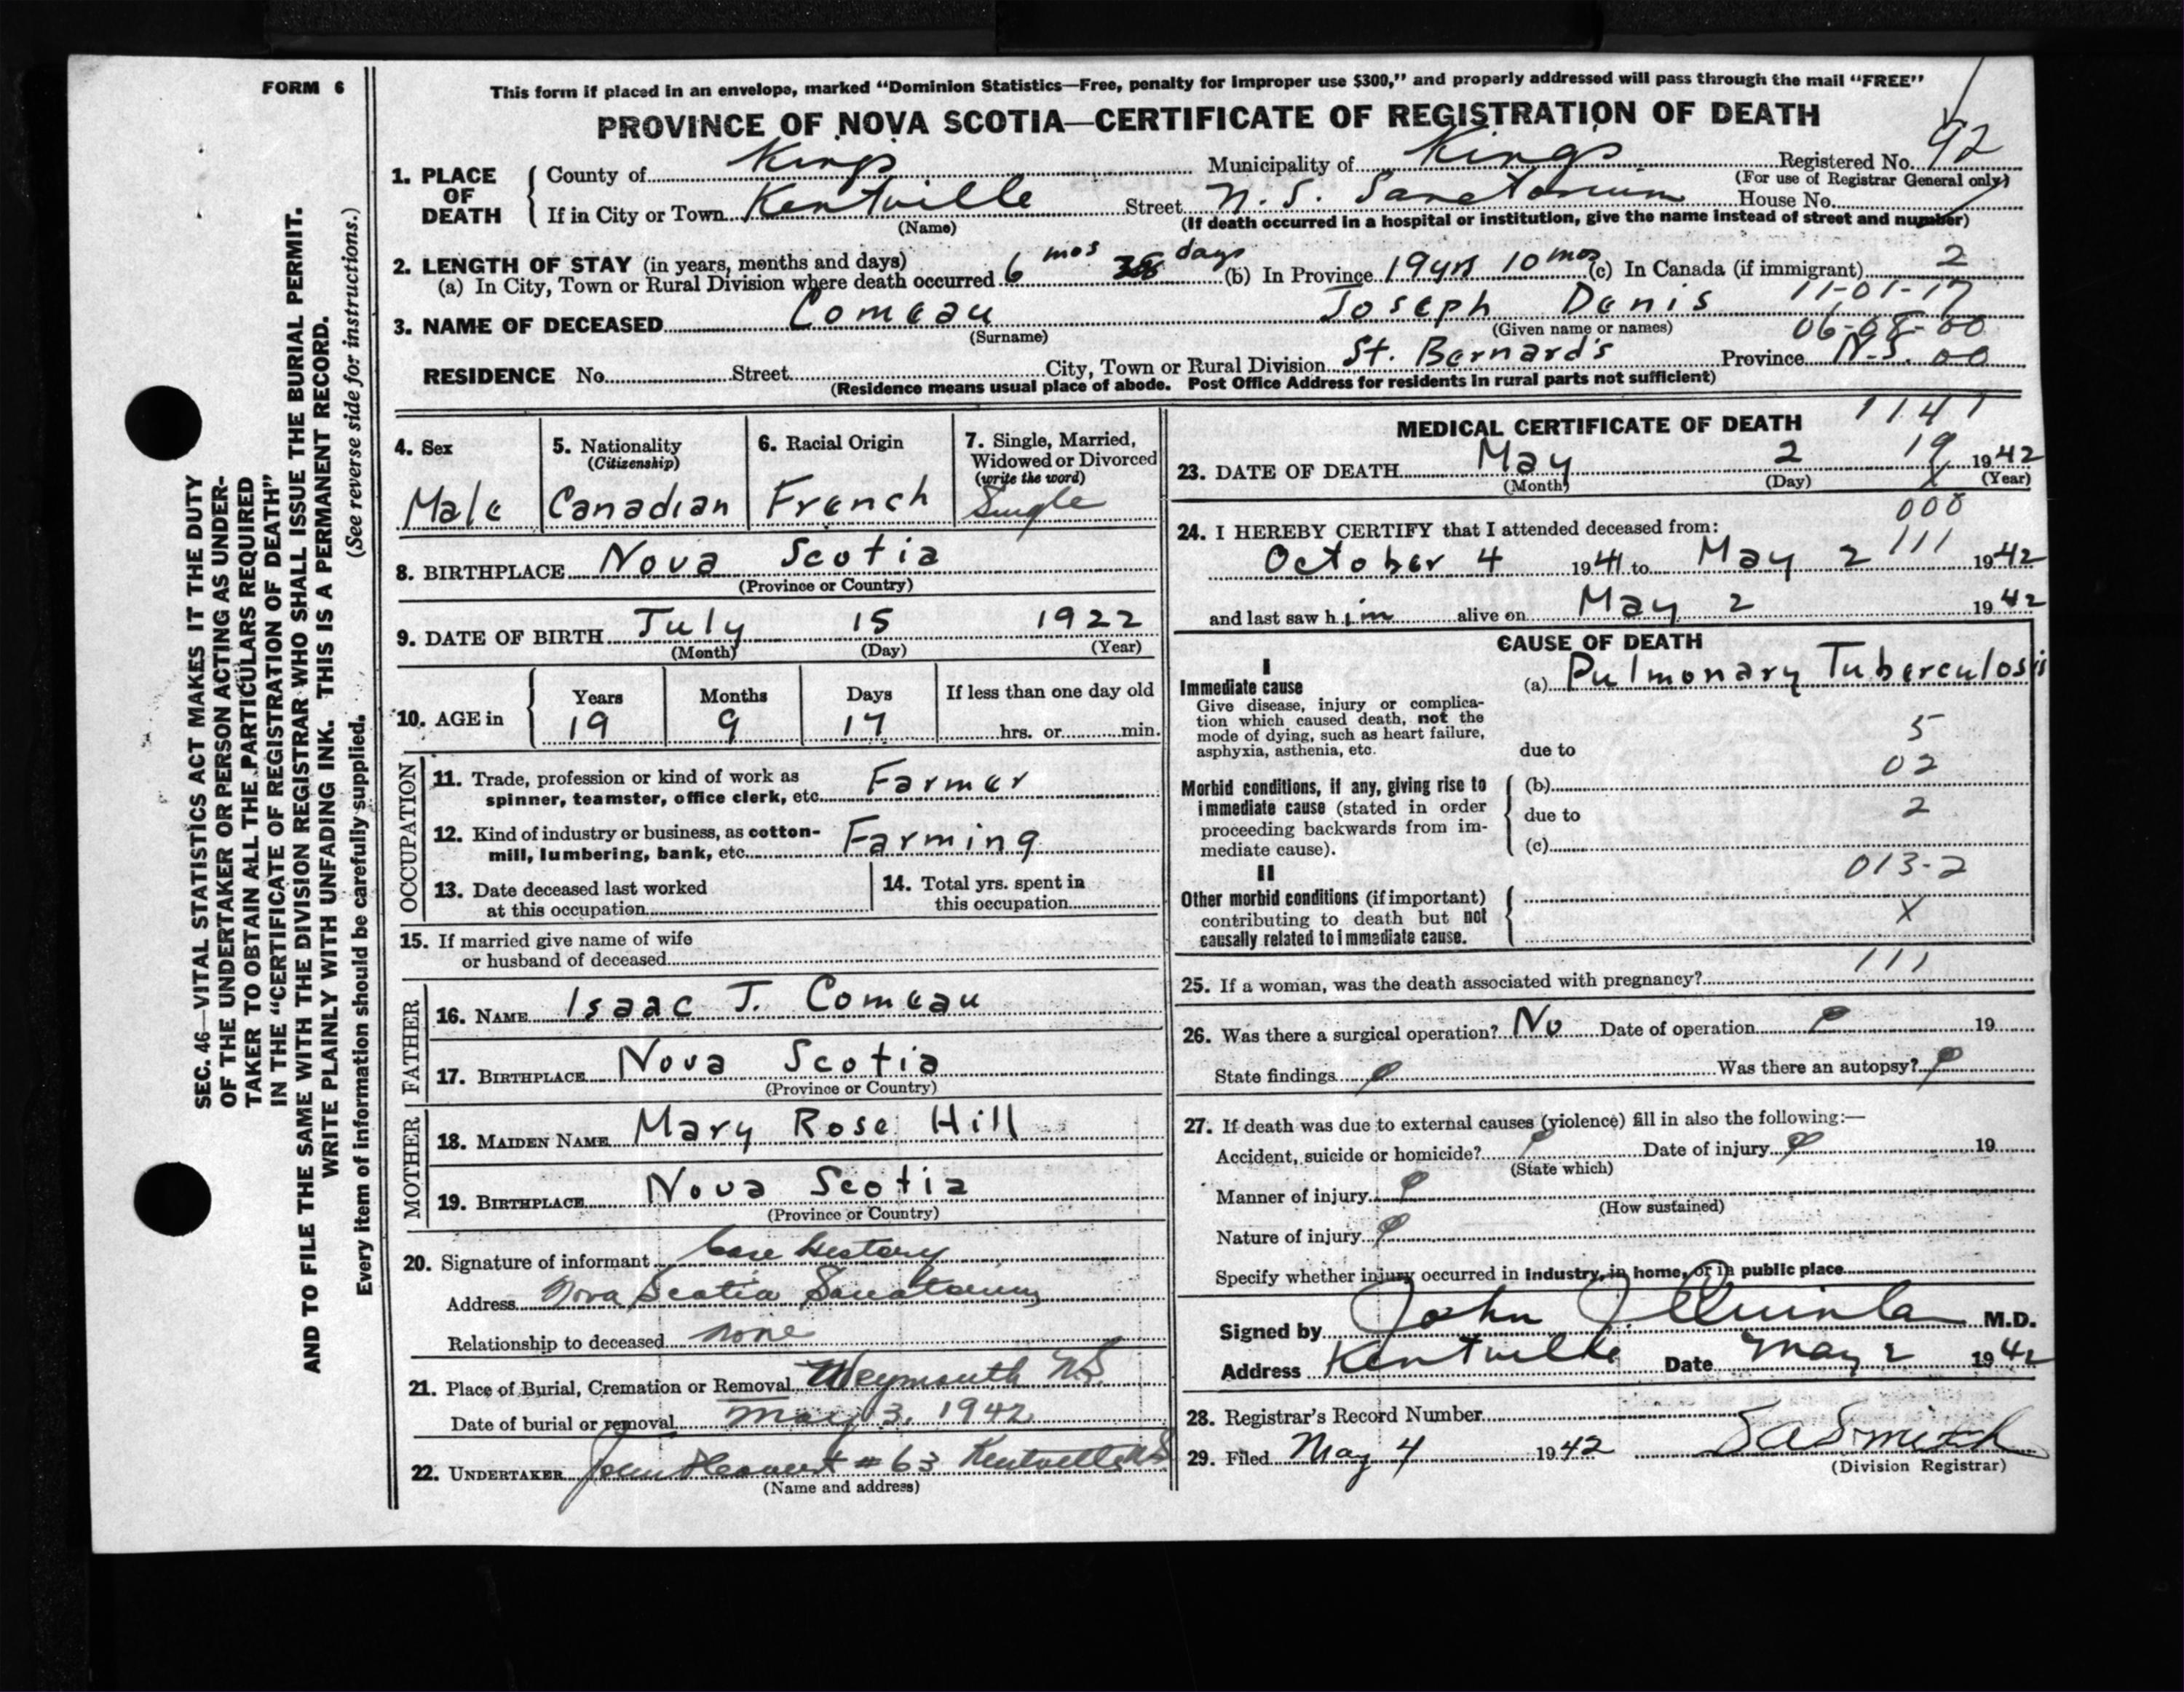 FORM 6
This form if placed in an envelope, marked “Dominion Statistics—Free, penalty for improper use $300,” and properly addressed will pass through the mail “FREE”
PROVINCE OF NOVA SCOTIA—CERTIFICATE OF REGISTRATION OF DEATH
1. PLACE OF DEATH
County of Kings Municipality of Kings Registered No. 92
(For use of Registrar General only)
If in City or Town Kentville Street N. S. Sanatorium House No.
(Name) (If death occurred in a hospital or institution, give the name instead of street and number)
2. LENGTH OF STAY (in years, months and days)
(a) In City, Town or Rural Division where death occurred 6 mos 28 days (b) In Province 19 yrs 10 mos (c) In Canada (if immigrant) 2
11-01-17
3. NAME OF DECEASED Comeau Joseph Denis
(Surname) (Given name or names) 06-08-00
RESIDENCE No. Street City, Town or Rural Division St. Bernard's Province N.S. 00
(Residence means usual place of abode. Post Office Address for residents in rural parts not sufficient)
4. Sex Male
5. Nationality (Citizenship) Canadian
6. Racial Origin French
7. Single, Married, Widowed or Divorced (write the word) Single
8. BIRTHPLACE Nova Scotia
(Province or Country)
9. DATE OF BIRTH July 15 1922
(Month) (Day) (Year)
10. AGE in Years Months Days If less than one day old
19 9 17 hrs. or min.
OCCUPATION
11. Trade, profession or kind of work as spinner, teamster, office clerk, etc. Farmer
12. Kind of industry or business, as cotton-mill, lumbering, bank, etc. Farming
13. Date deceased last worked at this occupation
14. Total yrs. spent in this occupation
15. If married give name of wife or husband of deceased
FATHER
16. NAME Isaac J. Comeau
17. BIRTHPLACE Nova Scotia
(Province or Country)
MOTHER
18. MAIDEN NAME Mary Rose Hill
19. BIRTHPLACE Nova Scotia
(Province or Country)
20. Signature of informant Case History
Address Nova Scotia Sanatorium
Relationship to deceased none
21. Place of Burial, Cremation or Removal Weymouth N.S.
Date of burial or removal May 3, 1942
22. UNDERTAKER # 63 Kentville N.S.
(Name and address)
MEDICAL CERTIFICATE OF DEATH
1141
23. DATE OF DEATH May 2 19 1942
(Month) (Day) (Year)
X
000
24. I HEREBY CERTIFY that I attended deceased from:
October 4 1941 to May 2 111 1942
and last saw him alive on May 2 1942
CAUSE OF DEATH
I
Immediate cause
Give disease, injury or complication which caused death, not the mode of dying, such as heart failure, asphyxia, asthenia, etc.
(a) Pulmonary Tuberculosis
5
due to
02
Morbid conditions, if any, giving rise to immediate cause (stated in order proceeding backwards from immediate cause).
(b)
due to 2
(c)
013-2
II
Other morbid conditions (if important) contributing to death but not causally related to immediate cause.
X
111
25. If a woman, was the death associated with pregnancy?
26. Was there a surgical operation? No Date of operation 19
State findings Was there an autopsy?
27. If death was due to external causes (violence) fill in also the following:—
Accident, suicide or homicide? Date of injury 19
(State which)
Manner of injury
(How sustained)
Nature of injury
Specify whether injury occurred in industry, in home, or in public place
Signed by John J Quinlan M.D.
Address Kentville Date May 2 1942
28. Registrar's Record Number
29. Filed May 4 1942
(Division Registrar)
SEC. 46—VITAL STATISTICS ACT MAKES IT THE DUTY
OF THE UNDERTAKER OR PERSON ACTING AS UNDER-
TAKER TO OBTAIN ALL THE PARTICULARS REQUIRED
IN THE “CERTIFICATE OF REGISTRATION OF DEATH”
AND TO FILE THE SAME WITH THE DIVISION REGISTRAR WHO SHALL ISSUE THE BURIAL PERMIT.
WRITE PLAINLY WITH UNFADING INK. THIS IS A PERMANENT RECORD.
Every item of information should be carefully supplied. (See reverse side for instructions.)